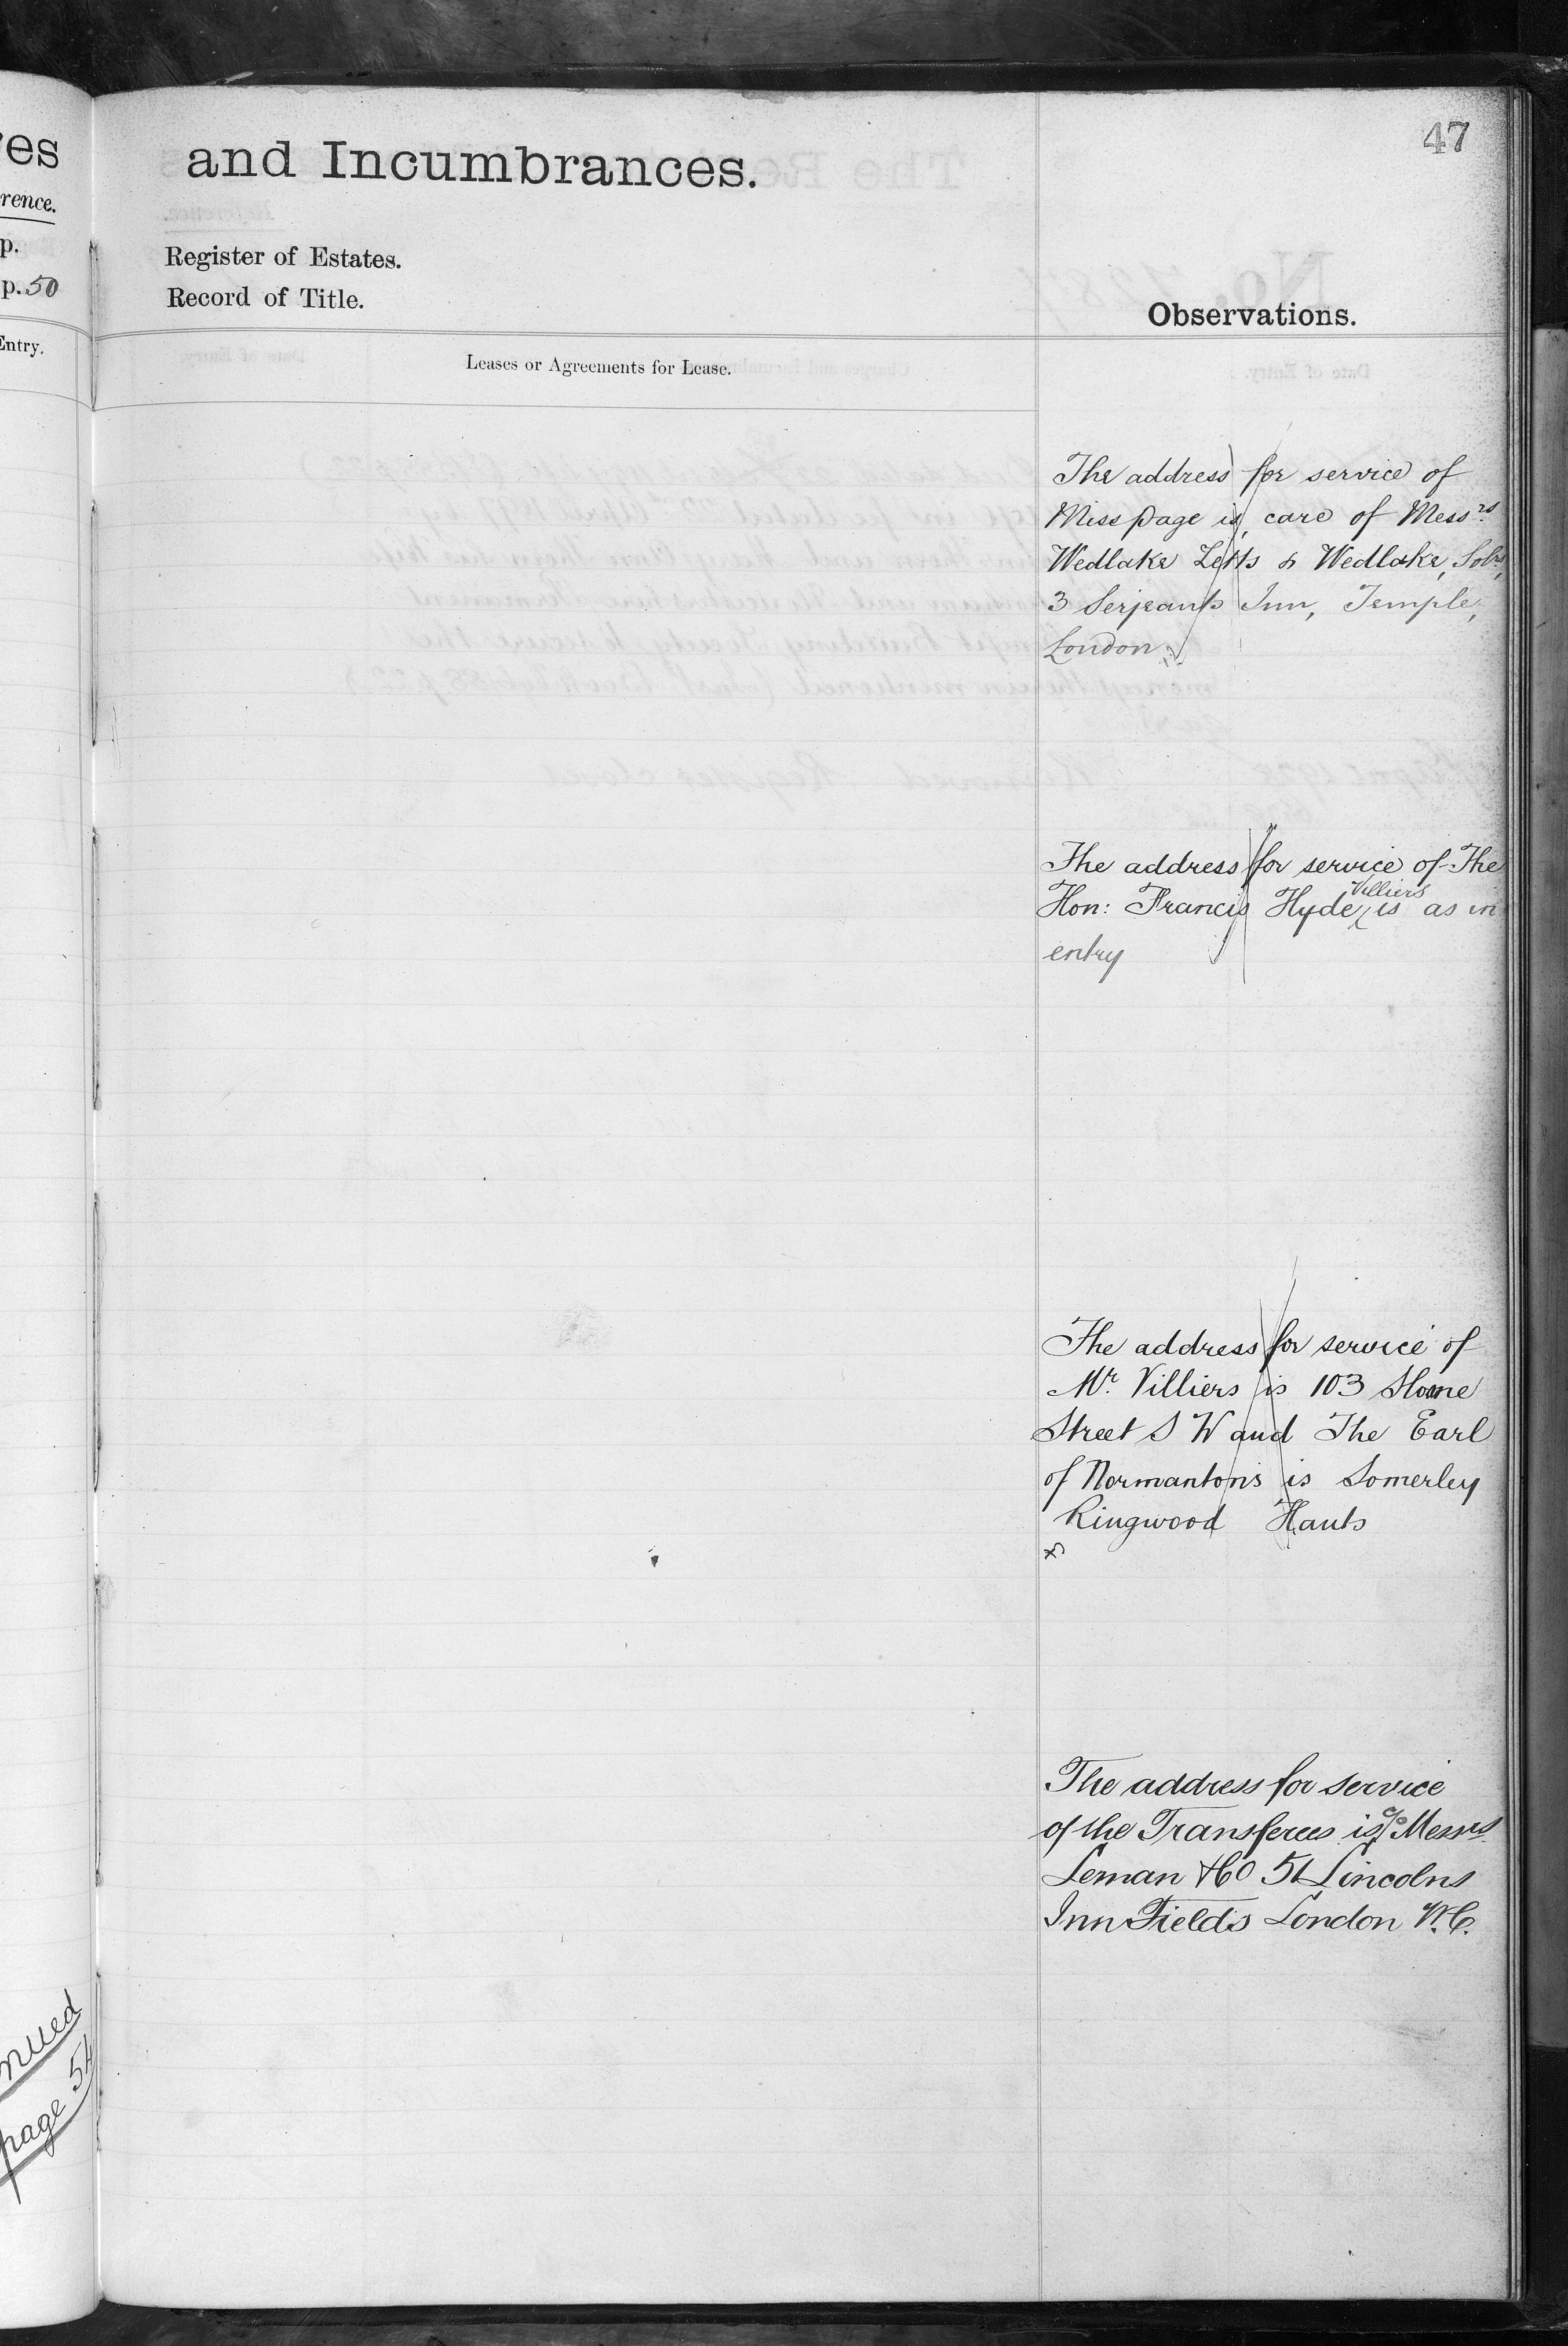 47
and Incumbrances.
Register of Estates.
Record of Title.
Observations.
Leases or Agreements for Lease.
The address for service of
Miss Page is, care of Messrs
Wedlake Letts & Wedlake, Solrs,
3 Serjeants Inn, Temple,
London.
The address for service of The
Hon: Francis Hyde Villiers is as in
entry
The address for service of
Mr. Villiers is 103 Sloane
Street S W and The Earl
of Normanton's is Somerley
Ringwood Hants
The address for service
of the Transferees is c/o Messrs
Leman & Co 51 Lincolns
Inn Fields London W.C.
rence.
p.
p. 50
Entry.
page 54